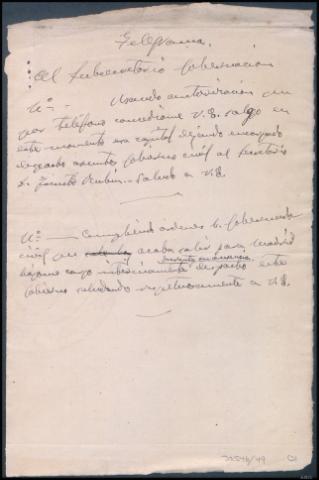 Telegrama.
Al Subsecretario Gobernación
Nº = Usando autorización que
por teléfono concedióme V.E. salgo en
este momento esa capital dejando encargado
despacho asuntos Gobierno civil al Secretario
D. Jacinto Rubín.. Saludo a V.E.
Nº = Cumpliendo órdenes Sr. Gobernador
civil que acaba salir para Madrid
durante su ausencia
hágome cargo interinamente despacho este
Gobierno saludando respetuosamente a V.E.